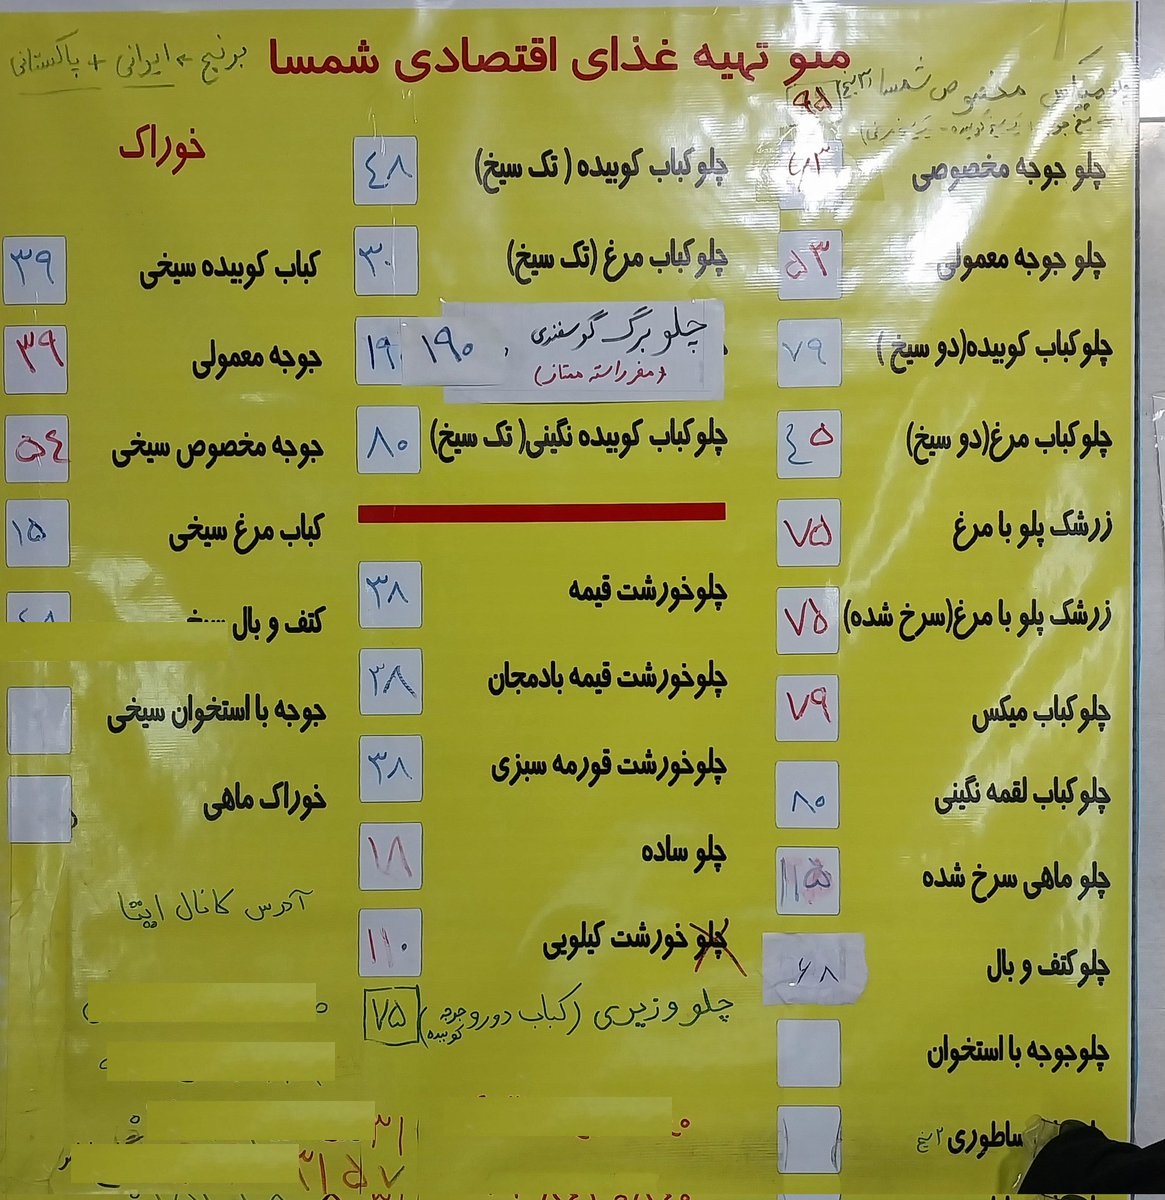 منو تهیه غذای اقتصادی شمسا
برنج + ایرانی + پاکستانی
میکس مخصوص شمسا
۹۵
چلو جوجه مخصوصی ۶۳
چلو جوجه معمولی ۵۳
چلو کباب کوبیده(دو سیخ) ۷۹
چلو کباب مرغ(دو سیخ) ٤۵
زرشک پلو با مرغ ۷۵
زرشک پلو با مرغ(سرخ شده) ۷۵
چلو کباب میکس ۷۹
چلو کباب لقمه نگینی ۸۰
چلو ماهی سرخ شده
چلو کتف و بال ۶۸
چلو جوجه با استخوان
ساطوری ۲ سیخ
چلو کباب کوبیده (تک سیخ) ٤۸
چلو کباب مرغ (تک سیخ) ۳۰
چلو برگ گوسفندی ۱۹۰
(مغز راسته ممتاز)
چلو کباب کوبیده نگینی(تک سیخ) ۸۰
چلو خورشت قیمه ۳۸
چلو خورشت قیمه بادمجان ۳۸
چلو خورشت قورمه سبزی ۳۸
چلو ساده ۱۸
چلو خورشت کیلویی ۱۱۰
چلو وزیری (کباب دورو جوجه کوبیده) ۷۵
خوراک
کباب کوبیده سیخی ۳۹
جوجه معمولی ۳۹
جوجه مخصوص سیخی ۵٤
کباب مرغ سیخی ۱۵
کتف و بال سیخی
جوجه با استخوان سیخی
خوراک ماهی
آدرس کانال ایتا